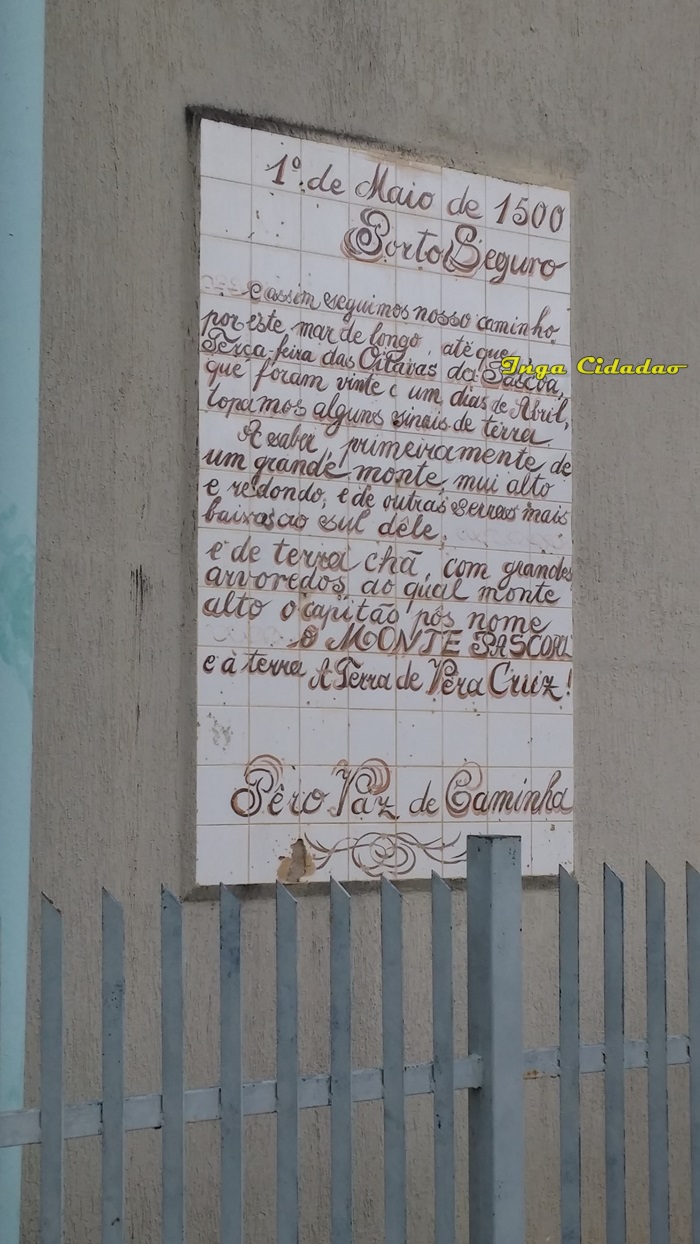 1º de Maio de 1500
Porto Seguro
e assim seguimos nosso caminho
por este mar de longo, até que
Terça-feira das Oitavas da Páscoa,
que foram vinte e um dias de Abril,
topamos alguns sinais de terra
A saber, primeiramente de
um grande monte, mui alto
e redondo, e de outras serras mais
baixas ao sul dêle,
e de terra chã, com grandes
arvoredos, ao qual monte
alto o capitão pôs nome
O MONTE PASCOAL
e à terra A Terra de Vera Cruz!
Pêro Vaz de Caminha
Inga Cidadao